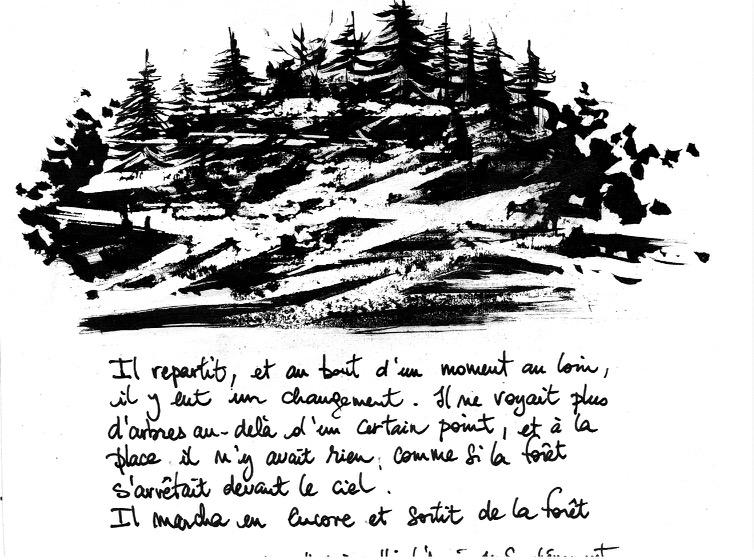 Il repartit, et au bout d'un moment au loin,
il y eut un changement. Il ne voyait plus
d'arbres au-delà d'un certain point, et à la
place il n'y avait rien, comme si la forêt
s'arrêtait devant le ciel.
Il marcha en encore et sortit de la forêt